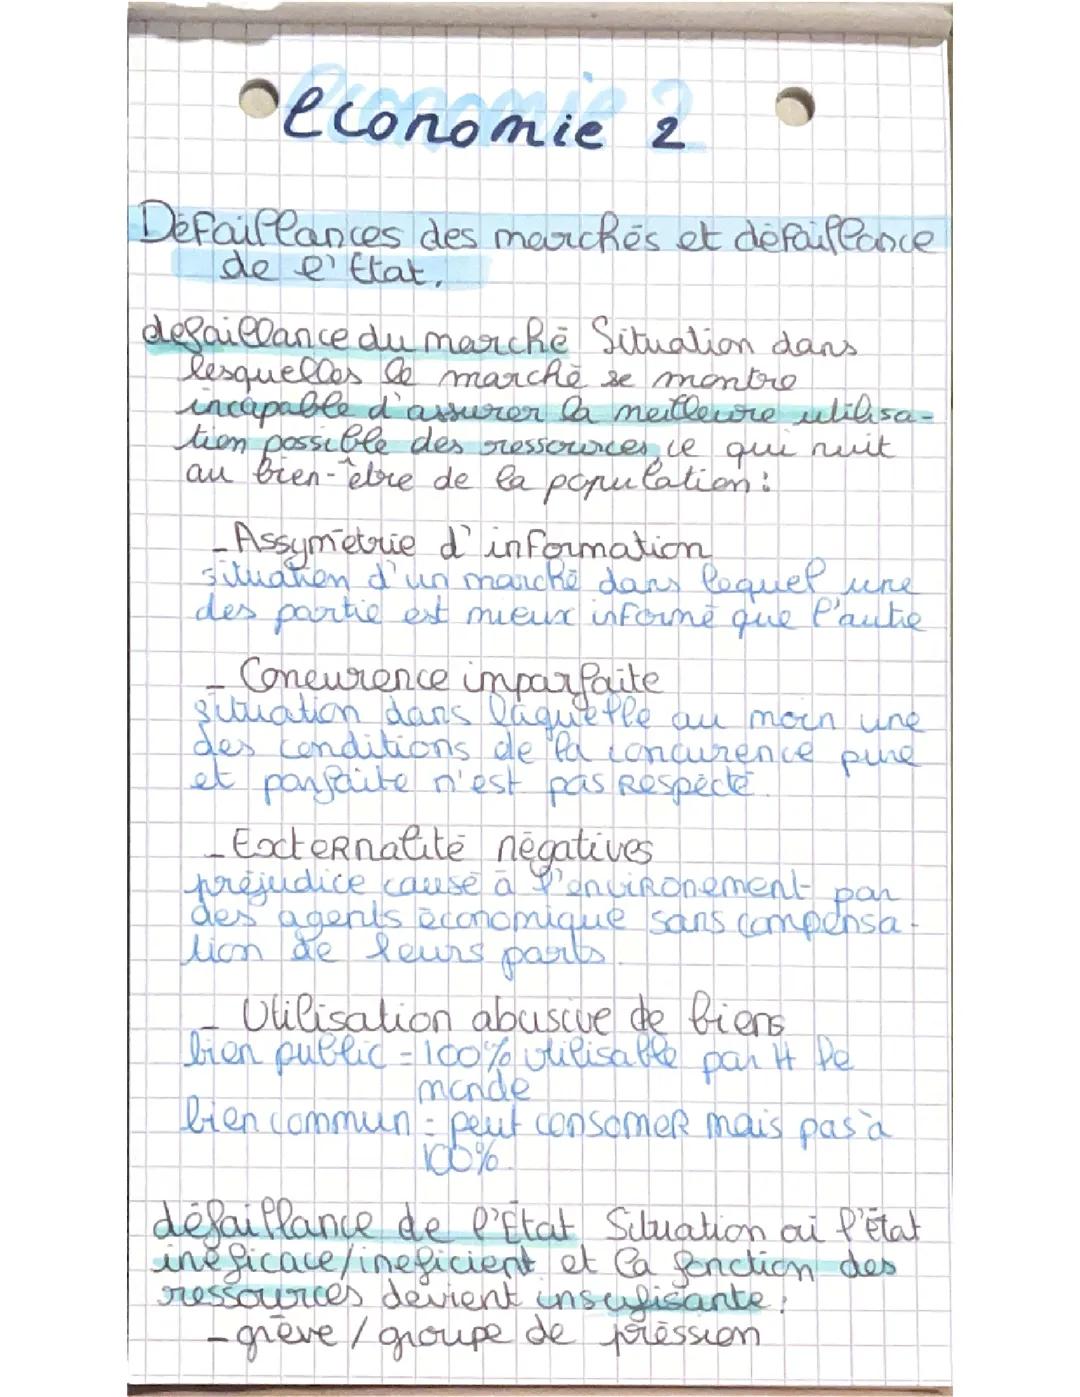 economie 2
Défaillances des marchés et défaillance
de l'Etat.
defaillance du marché Situation dans
lesquelles le marché se montre
incapable d'assurer la meilleure utilisa-
tion possible des ressources, ce qui nuit
au bien-être de la population :
- Assymétrie d'information
situation d'un marché dans lequel une
des partie est mieux informé que l'autre
- Concurence imparfaite
situation dans laquelle au moin une
des conditions de la concurence pure
et parfaite n'est pas respecté.
- Externalité négatives
préjudice causé à l'environement par
des agents économique sans compensa-
tion de leurs parts.
- Utilisation abusive de biens
bien public = 100% utilisable par tt le
monde
bien commun = peut consomer mais pas à
100%.
défaillance de l'État Situation où l'état
inéficace/ineficient et la fonction des
ressources devient insufisante :
- grève / groupe de préssion